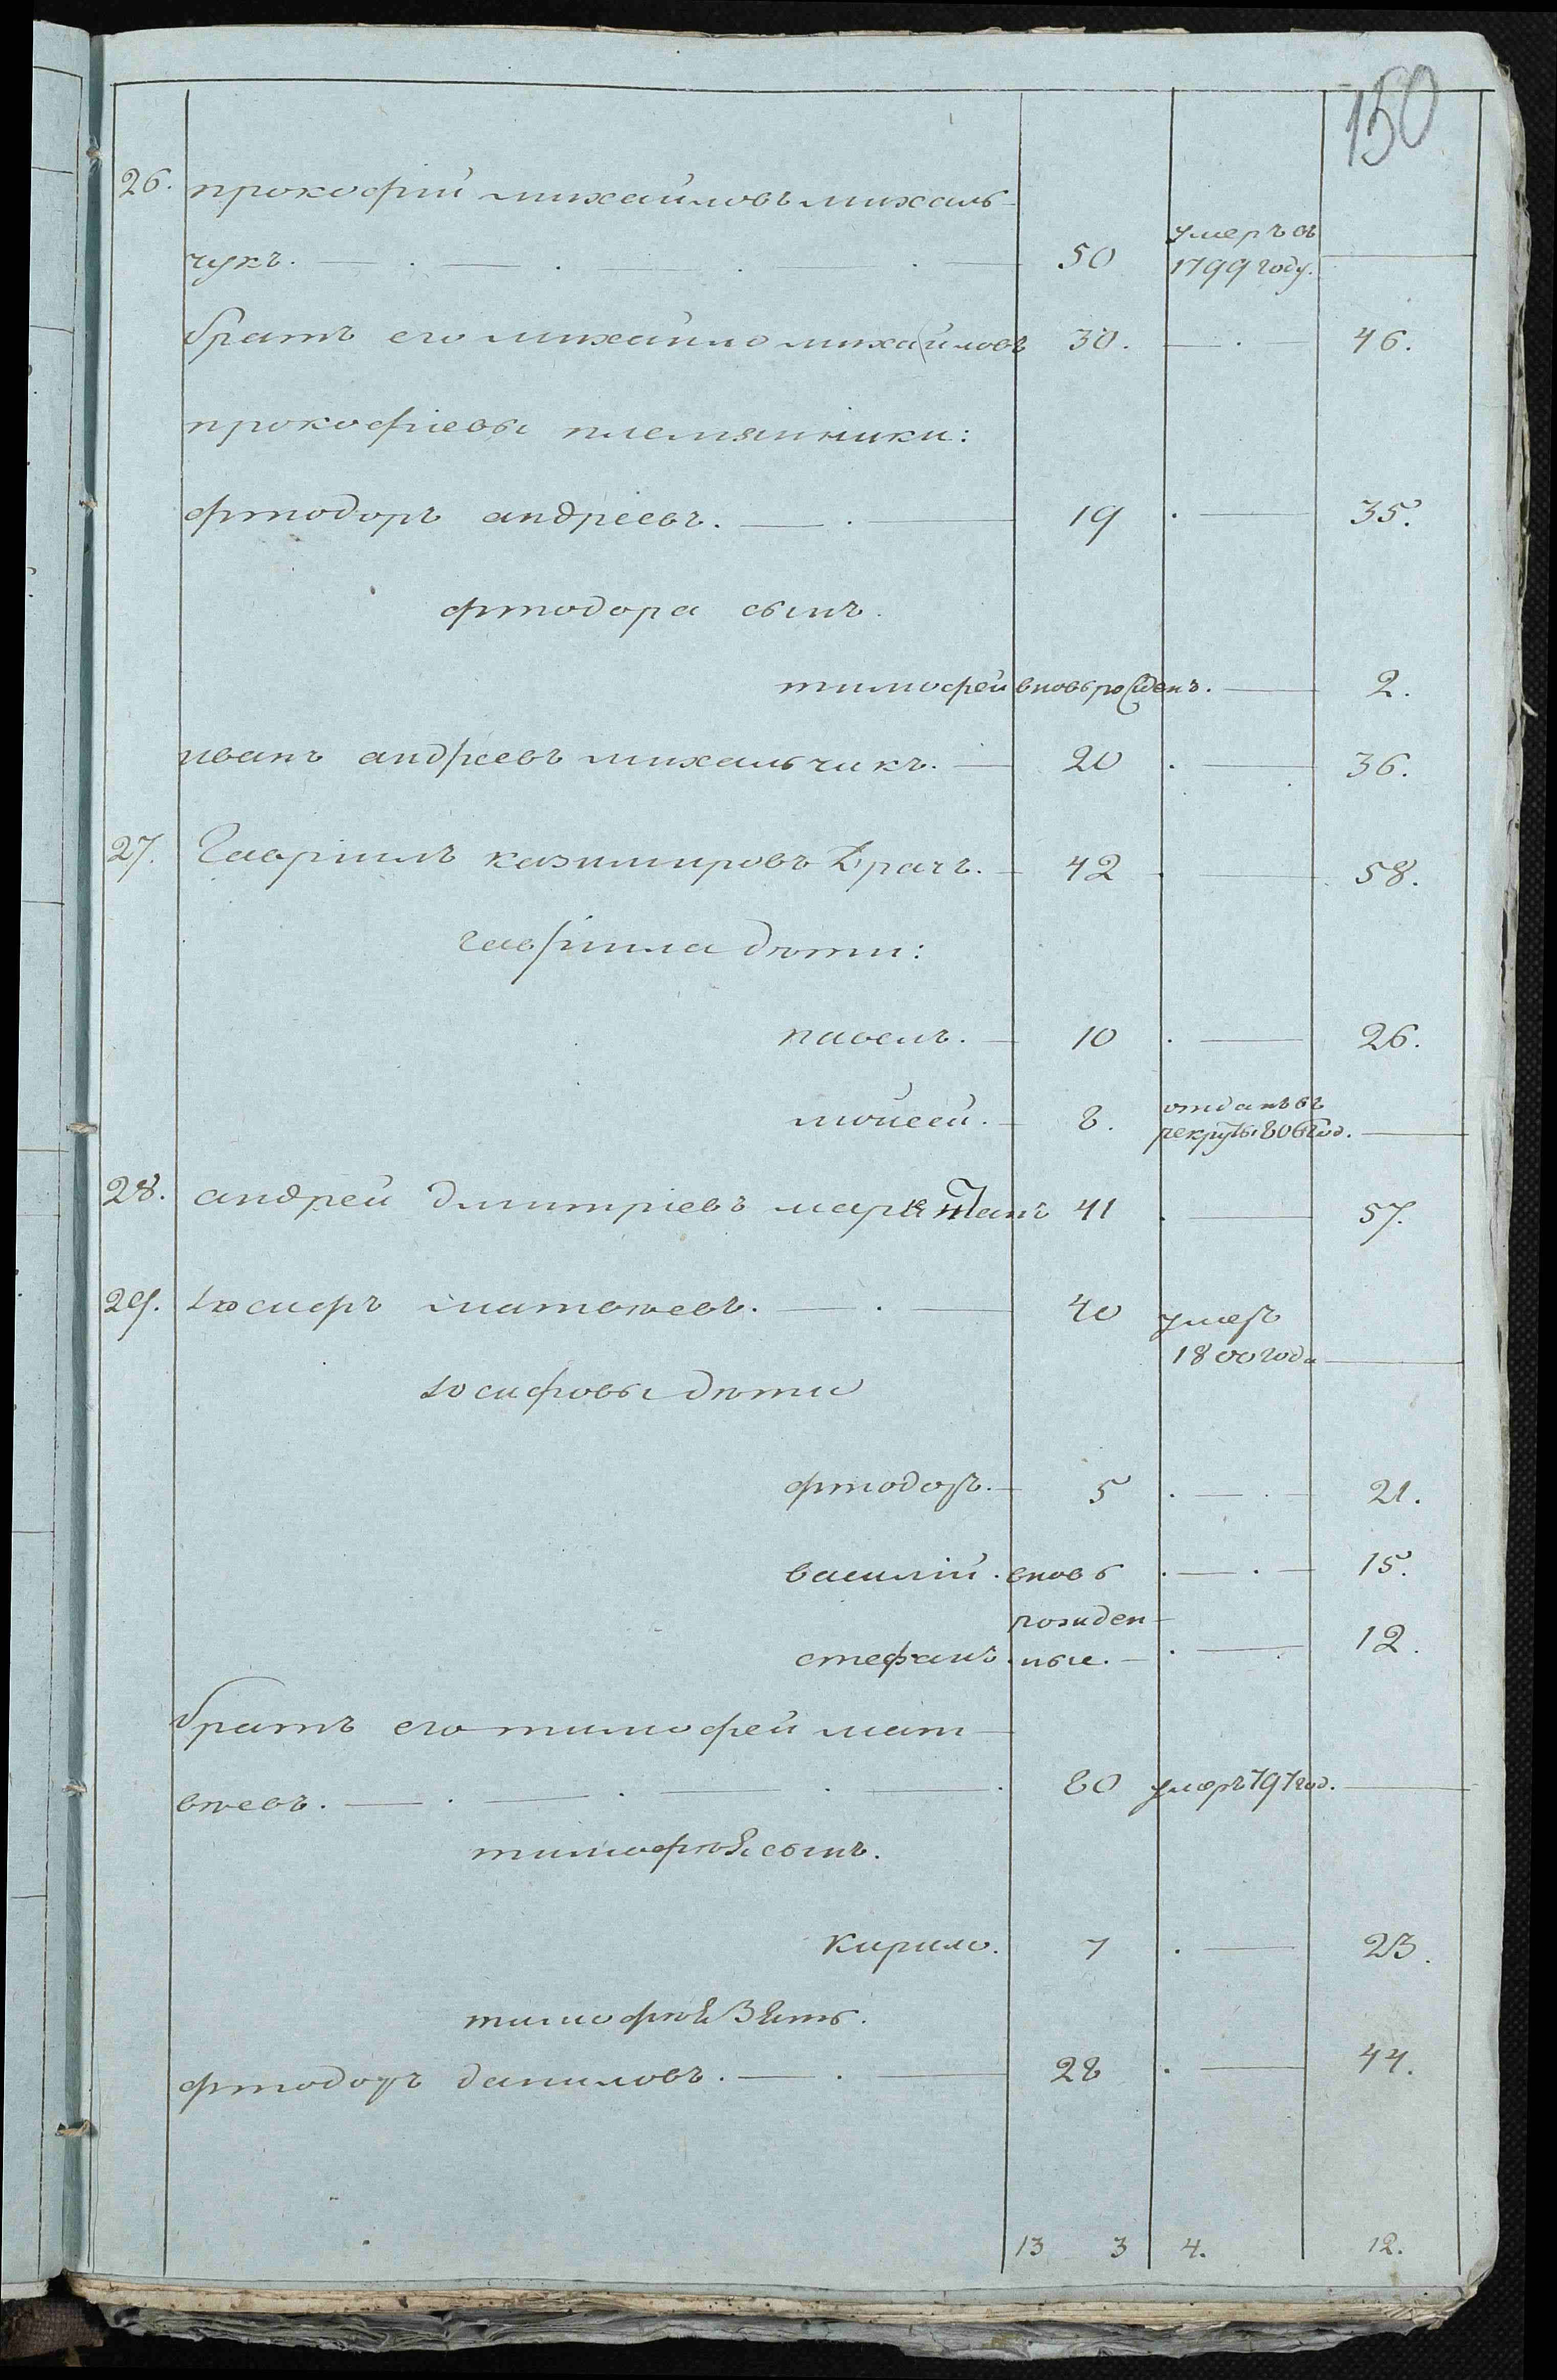 150
26. прокофій михайловъ михаль-
чукъ. 50 умеръ въ 1799 году.
братъ его михайло михайловъ 30. 46.
прокофіевы племянники:
фтодоръ андреевъ. 19 35.
фтодора сынъ.
тимофей вновь рожденъ. 2.
иванъ андреевъ михальчикъ. 20 36.
27. Гавріилъ казимировъ Драчъ. 42 58.
гавріила дѣти:
павелъ. 10 26.
мойсей. 8. отданъ въ рекруты 806 год.
28. андрей дмитріевъ 41 57.
29. Іосифъ матвѣевъ. 40 умеръ 1800 года
Іосифовы дѣти
фтодоръ. 5 21.
василій. вновь 15.
рожден-
стефанъ. ные. 12.
братъ его тимофей мат-
вѣевъ. 80 умеръ 797 год.
тимофѣя сынъ.
Кирило. 7 23.
тимофѣя Зять.
фтодоръ даниловъ. 28 44.
13 3 4. 12.